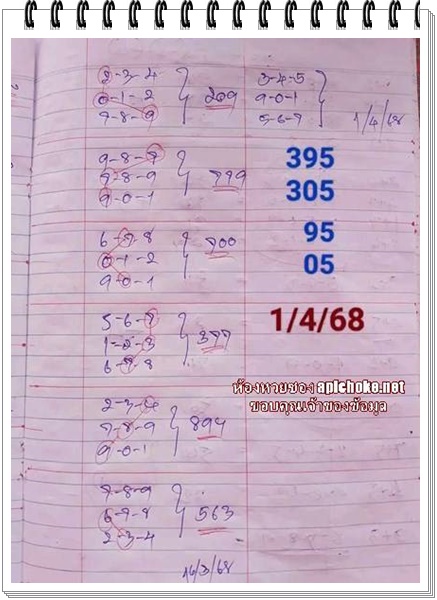 2-3-4
0-1-2
7-8-9
209
3-4-5
9-0-1
5-6-7
1/4/68
9-8-7
7-8-9
9-0-1
799
395
305
6-7-8
0-1-2
9-0-1
700
95
05
5-6-7
1-2-3
6-7-8
377
1/4/68
ห้องหวยซอง apichoke.net
ขอบคุณเจ้าของข้อมูล
2-3-4
7-8-9
9-0-1
894
7-8-9
6-7-8
2-3-4
563
16/3/68